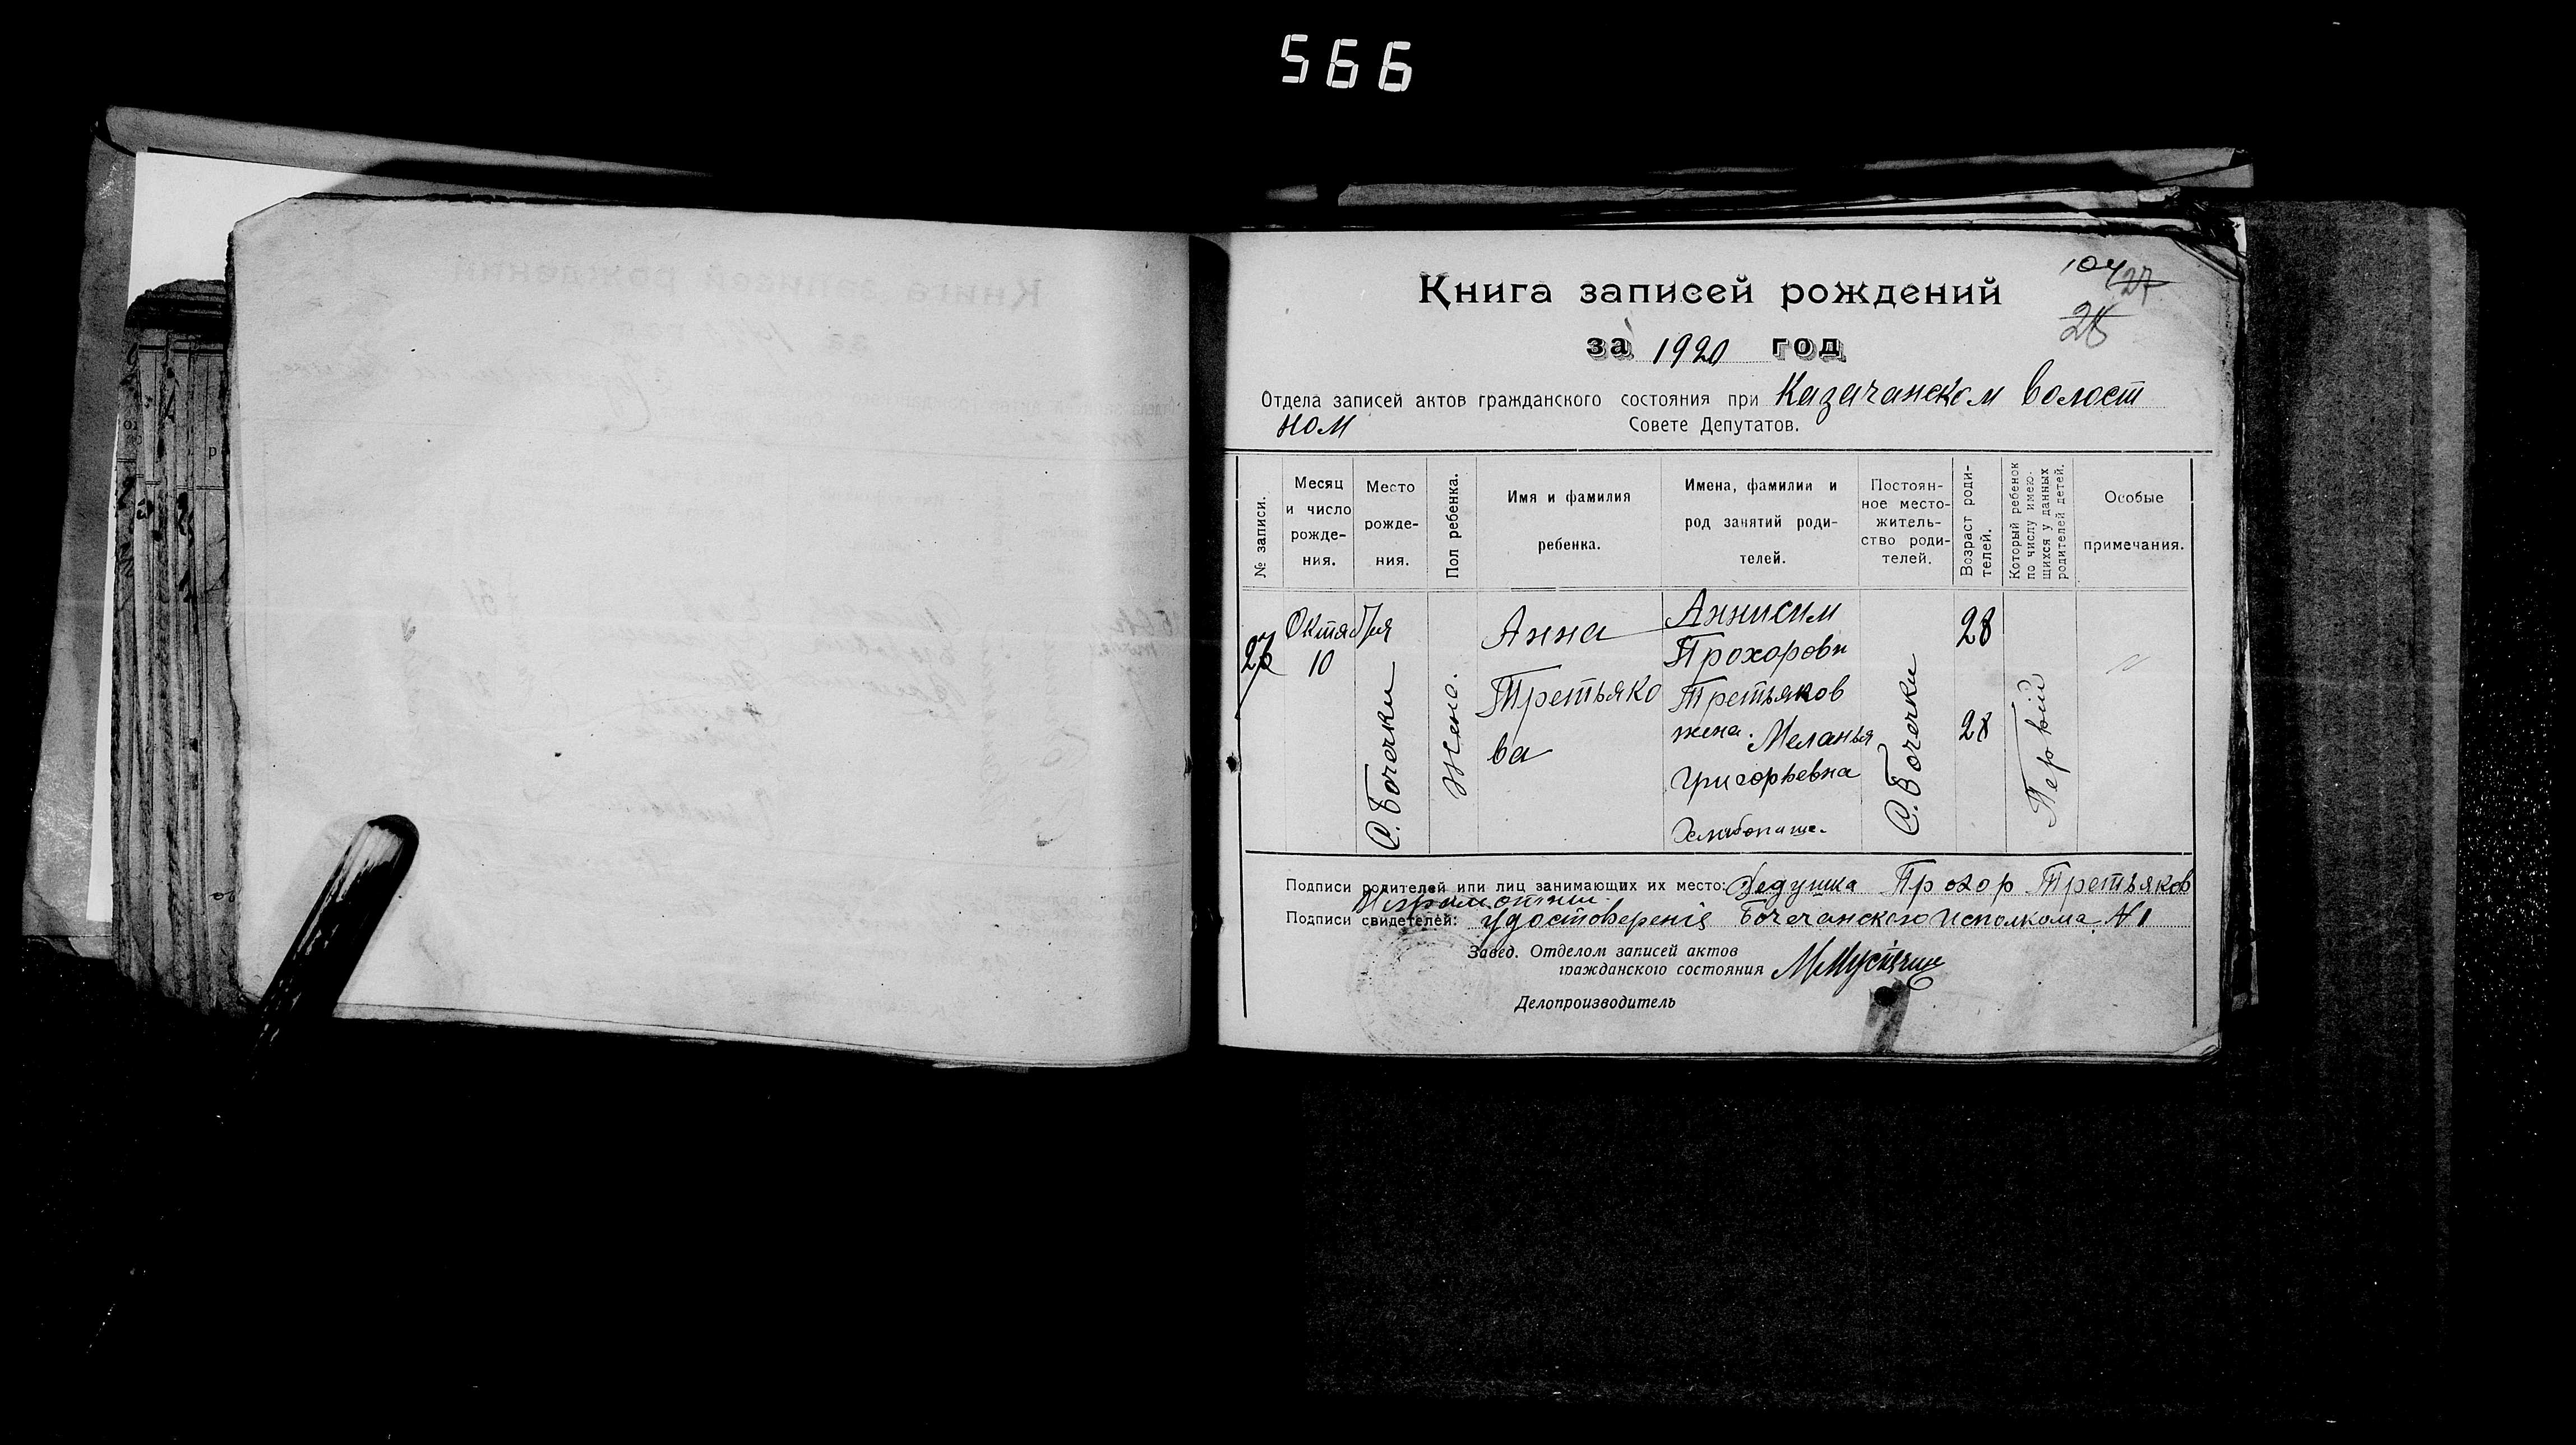 566
104 27
28
Книга записей рождений
за 1920 год
Отдела записей актов гражданского состояния при Казачанском Волост
ном Совете Депутатов.
№ записи.
Месяц
и число
рожде-
ния.
Место
рожде-
ния.
Пол ребенка.
Имя и фамилия
ребенка.
Имена, фамилии и
род занятий роди-
телей.
Постоян-
ное место-
житель-
ство роди-
телей.
Возраст роди-
телей.
Который ребенок
по числу имею-
щихся у данных
родителей детей.
Особые
примечания.
Октября
10
С. Бочечки
Жено.
Анна
Третьяко
ва
Аннисим
Прохорови
Третьяков
жена. Меланья
Григорьевна
С. Бочечки
28
28
Первый
"
Подписи родителей или лиц занимающих их место: Дедушка Прохор Третьяков
Подписи свидетелей: удостоверенія Бочечанского Исполкома N 1
Завед. Отделом записей актов
гражданского состояния
Делопроизводитель